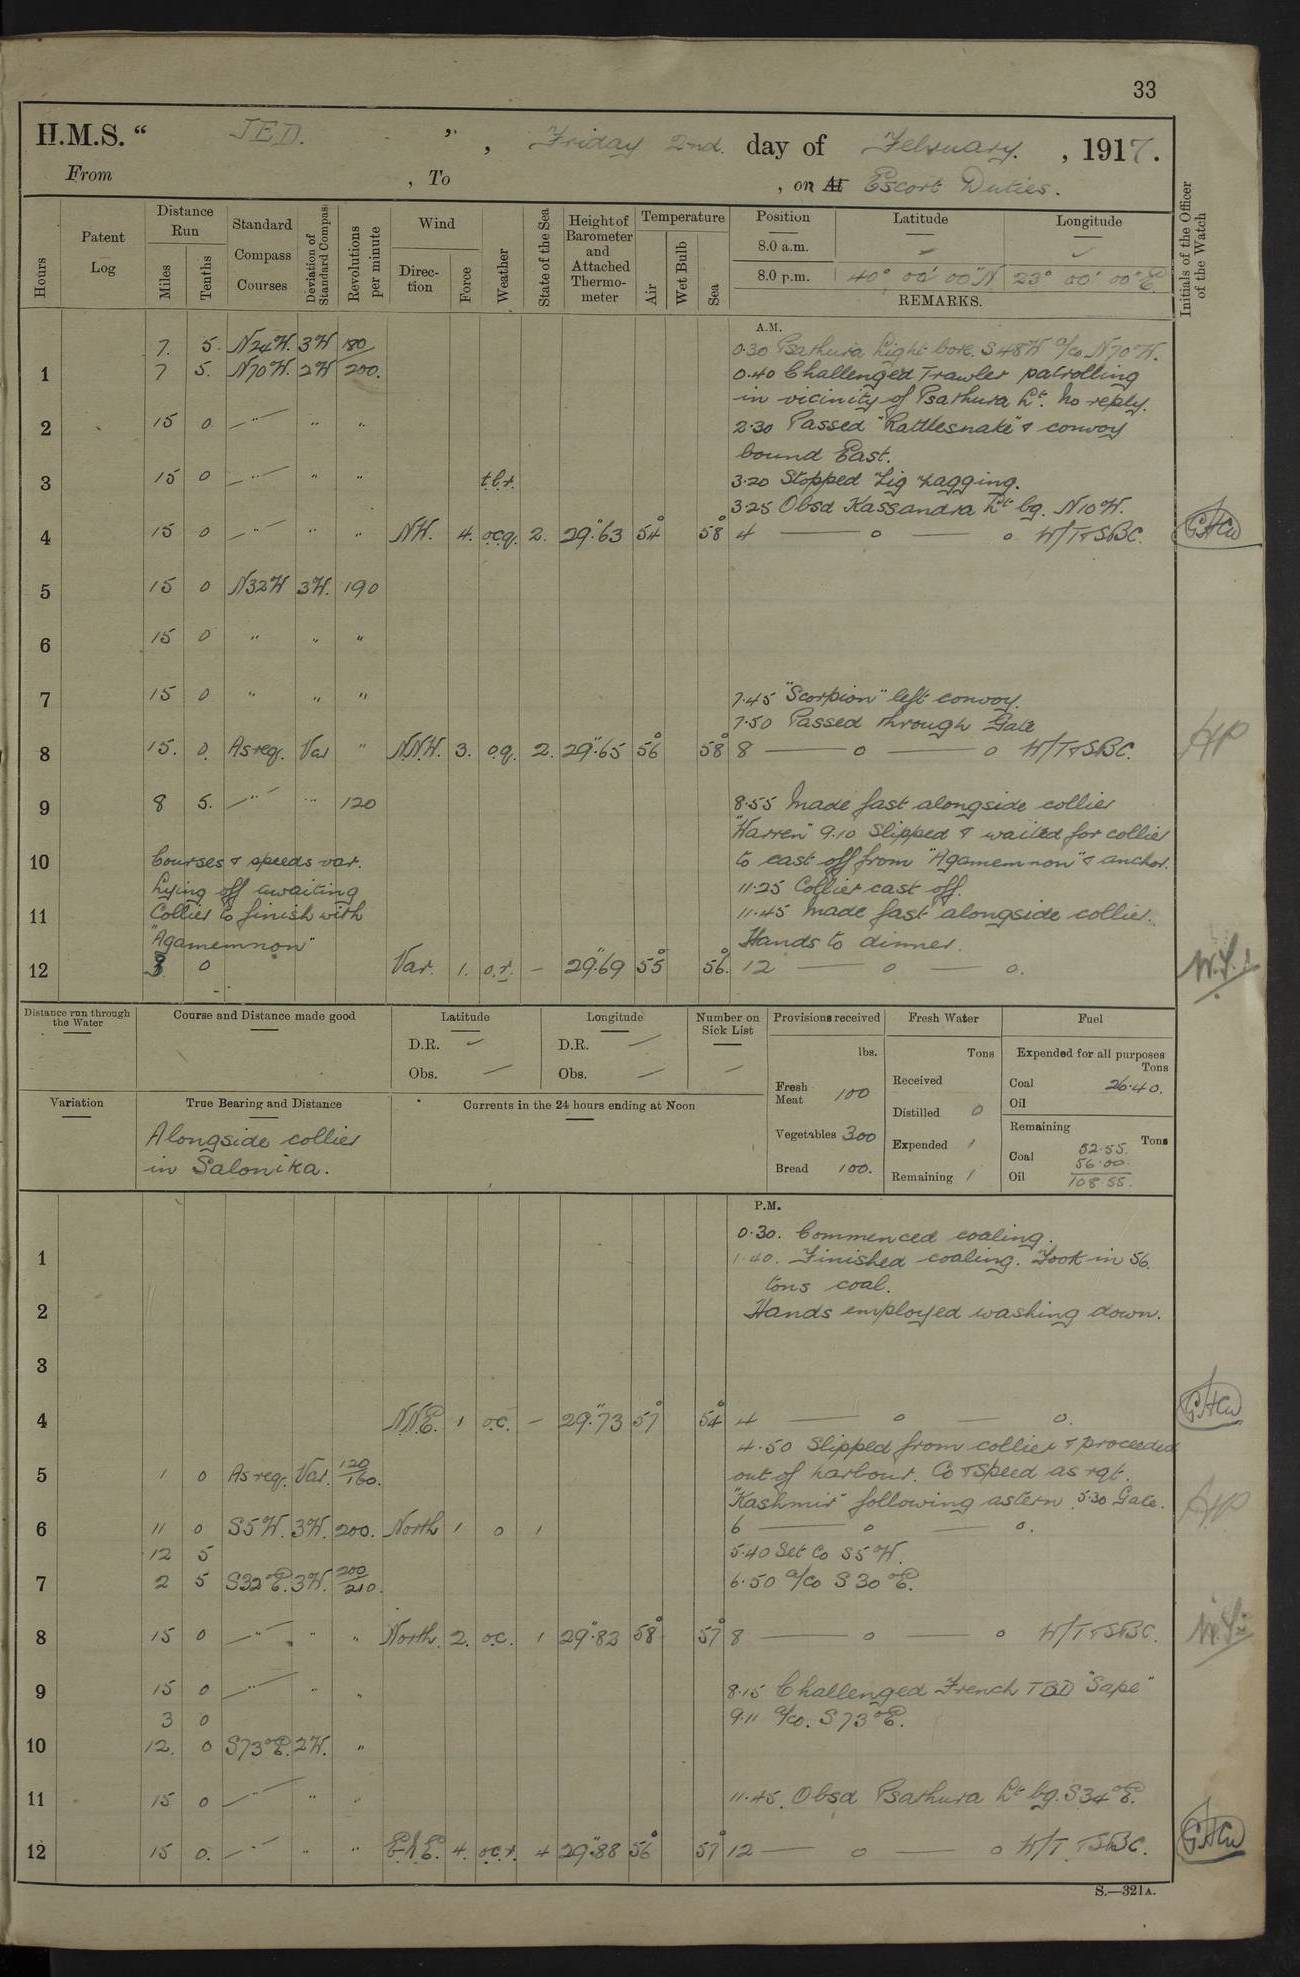 33
H.M.S. " JED. ", Friday 2nd. day of February. , 1917.
From , To , on At Escort Duties.
Hours
Patent Log
Distance Run
Miles
Tenths
Standard Compass Courses
Deviation of Standard Compass
Revolutions per minute
Wind
Direction
Force
Weather
State of the Sea
Height of Barometer and Attached Thermometer
Temperature
Air
Wet Bulb
Sea
Position Latitude Longitude
8.0 a.m. – –
8.0 p.m. 40° 00' 00" N 23° 00' 00" E.
REMARKS.
Initials of the Officer of the Watch
A.M.
7. 5. N24W. 3W 180 0.30 Psathura Light bore. S48W a/co N70W.
1 7 5. N70W. 2W 200. 0.40 Challenged Trawler patrolling
in vicinity of Psathura Lt. No reply.
2 15 0 " " " 2.30 Passed "Rattlesnake" & convoy
bound East.
3 15 0 " " " t.l.r. 3.20 Stopped Zig Zagging.
3.25 Obsd Kassandra Lt bg. N10W.
4 15 0 " " " NW. 4. ocq. 2. 29.63 54° 58° 4 — o — o W/T & SBC.
5 15 0 N32W 3W. 190
6 15 0 " " "
7 15 0 " " " 7.45 "Scorpion" left convoy.
7.50 Passed through Gate
8 15. 0. As req. Var " NNW. 3. oq. 2. 29.65 56° 58° 8 — o — o W/T & SBC. HP
9 8 5. " " 120 8.55 Made fast alongside collier
"Warren" 9.10 Slipped & waited for collier
10 Courses & speeds var. to cast off from "Agamemnon" & anchor.
Lying off awaiting 11.25 Collier cast off.
11 Collier to finish with 11.45 Made fast alongside collier.
"Agamemnon" Hands to dinner.
12 3 0 Var. 1. o.r. – 29.69 55° 56°. 12 — o — o.
Distance run through the Water
Course and Distance made good
Latitude
D.R. –
Obs. –
Longitude
D.R. –
Obs. –
Number on Sick List
–
Provisions received
lbs.
Fresh Meat 100
Vegetables 300
Bread 100.
Fresh Water
Tons
Received
Distilled 0
Expended 1
Remaining 1
Fuel
Expended for all purposes
Tons
Coal 26.40.
Oil
Remaining
Tons
Coal 52.55.
56.00.
Oil 108.55.
Variation
True Bearing and Distance
Alongside collier
in Salonika.
Currents in the 24 hours ending at Noon
P.M.
0.30. Commenced coaling.
1 1.40. Finished coaling. Took in 56.
tons coal.
2 Hands employed washing down.
3
4 N.N.E. 1 oc. – 29.73 57° 54° 4 — o — o.
4.50 Slipped from collier & proceeded
5 1 0 As req. Var. 120/160. out of harbour. Co & Speed as rqt.
"Kashmir" following astern. 5.30 Gate.
6 11 0 S5W. 3W. 200. North 1 o 1 6 — o — o. HP
12 5 5.40 Set Co S5°W.
7 2 5 S32°E. 3W. 200/210. 6.50 a/co S30°E.
8 15 0 " " " North. 2. oc. 1 29.82 58° 57° 8 — o — o W/T & SBC.
9 15 0 " " " 8.15 Challenged French TBD "Sape"
3 0 9.11 a/co. S73°E.
10 12. 0 S73°E. 2W. "
11 15 0 " " " 11.45. Obsd Psathura Lt bg. S34°E.
12 15 0. " " " E.N.E. 4. oc.r. 4 29.88 56° 57° 12 — o — o W/T & SBC.
S.—321A.